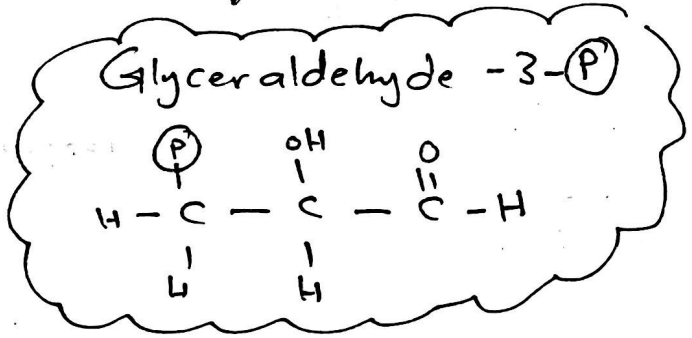 Glyceraldehyde -3-P
P OH O
H - C - C - C - H
H H